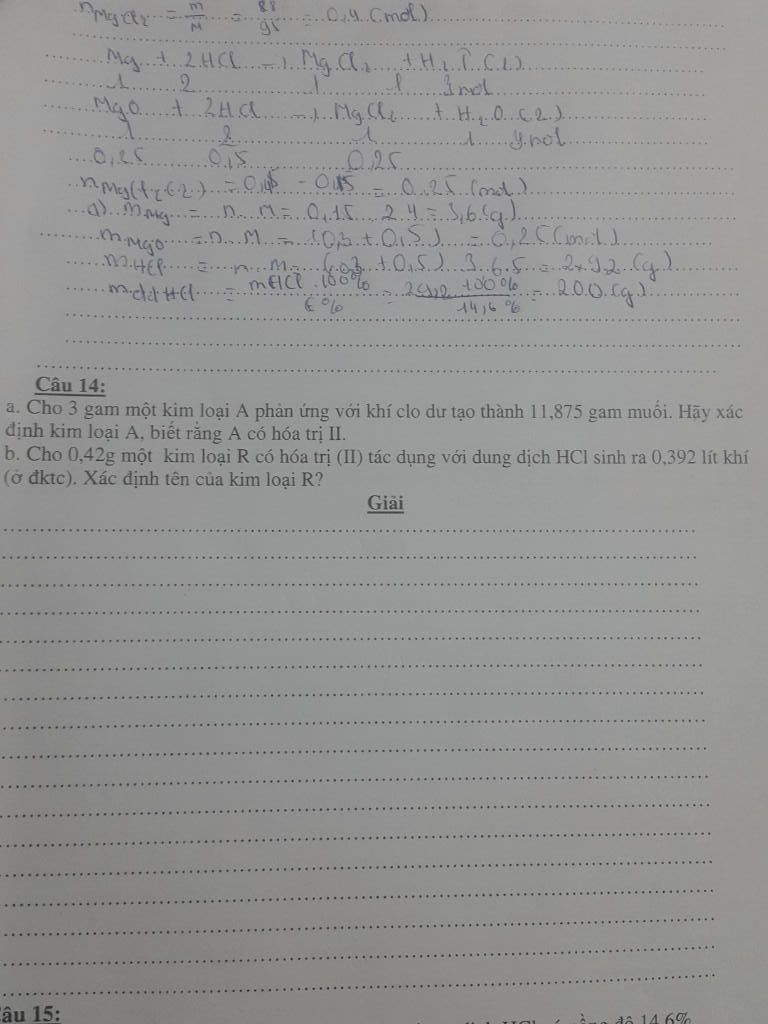 nMgCl₂ = m/M = 38/95 = 0,4 (mol)
Mg + 2HCl → MgCl₂ + H₂↑ (1)
1 2 1 1 mol
MgO + 2HCl → MgCl₂ + H₂O (2)
1 2 1 1 mol
0,25 0,5 0,25
= 0,25 (mol)
a) mMg = n.M = 0,15.24 = 3,6 (g)
mMgO = n.M = (0,3 + 0,5) = 0,25 (mol)
mHCl = n.M = (0,3 + 0,5) 36,5 = (g)
mdd HCl = mHCl.100% / C% = 100% / 14,6% = 200 (g)
Câu 14:
a. Cho 3 gam một kim loại A phản ứng với khí clo dư tạo thành 11,875 gam muối. Hãy xác
định kim loại A, biết rằng A có hóa trị II.
b. Cho 0,42g một kim loại R có hóa trị (II) tác dụng với dung dịch HCl sinh ra 0,392 lít khí
(ở đktc). Xác định tên của kim loại R?
Giải
Câu 15:
14,6%